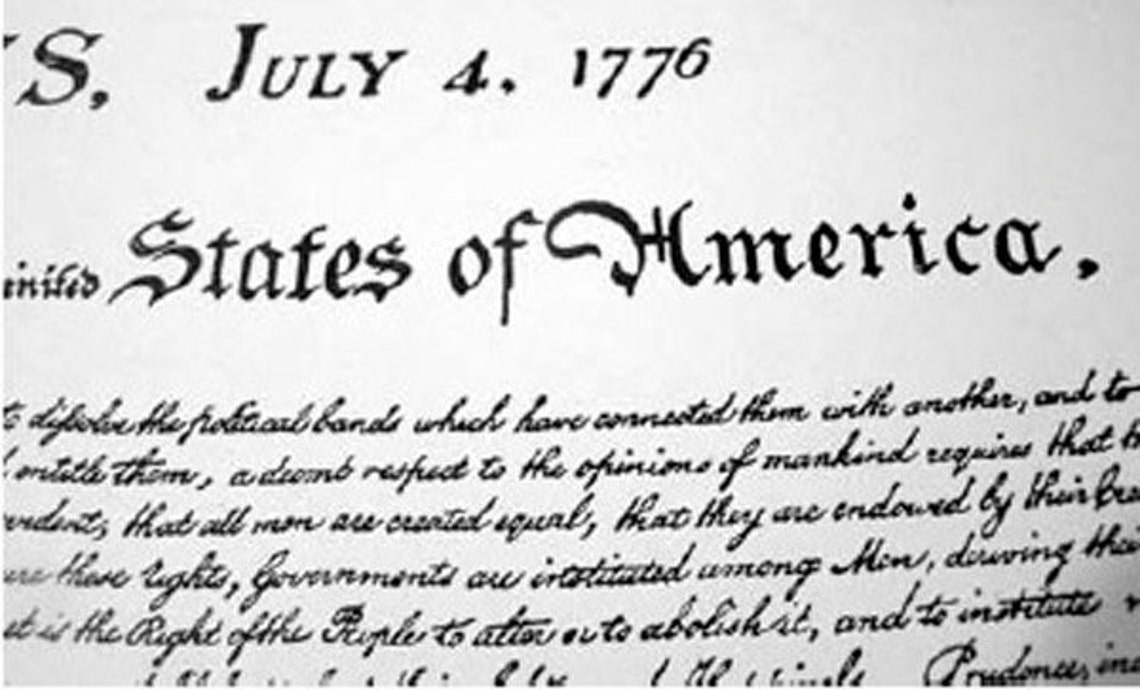 S, JULY 4. 1776
States of America.
dissolve the political bands which have connected them with another, and to
entitle them, a decent respect to the opinions of mankind requires that
that all men are created equal, that they are endowed by their Crea
these rights, Governments are instituted among Men, deriving their
is the Right of the People to alter or to abolish it, and to institute
Prudence, in